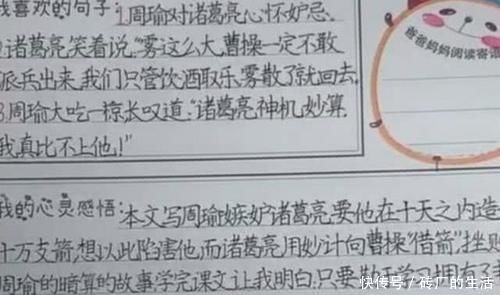 我喜欢的句子:1.周瑜对诸葛亮心怀妒忌.
2.诸葛亮笑着说,"雾这么大,曹操一定不敢
派兵出来.我们只管饮酒取乐,雾散了就回去.
3.周瑜大吃一惊长叹道:"诸葛亮神机妙算
我真比不上他!"
爸爸妈妈阅读寄语
我的心灵感悟:本文写周瑜嫉妒诸葛亮,要他在十天之内造
十万支箭,想以此陷害他,而诸葛亮用妙计向曹操"借箭",挫
周瑜的暗算的故事学完课文让我明白:只要
快传号/砖厂的生活